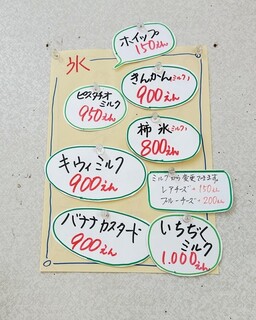 ホイップ
150えん
氷
きんかん(ミルク)
900えん
ピスタチオ
ミルク
950えん
柿氷(ミルク)
800えん
キウイミルク
900えん
ミルクから変更できます
レアチーズ +150えん
ブルーチーズ +200えん
バナナカスタード
900えん
いちぢく
ミルク
1.000えん